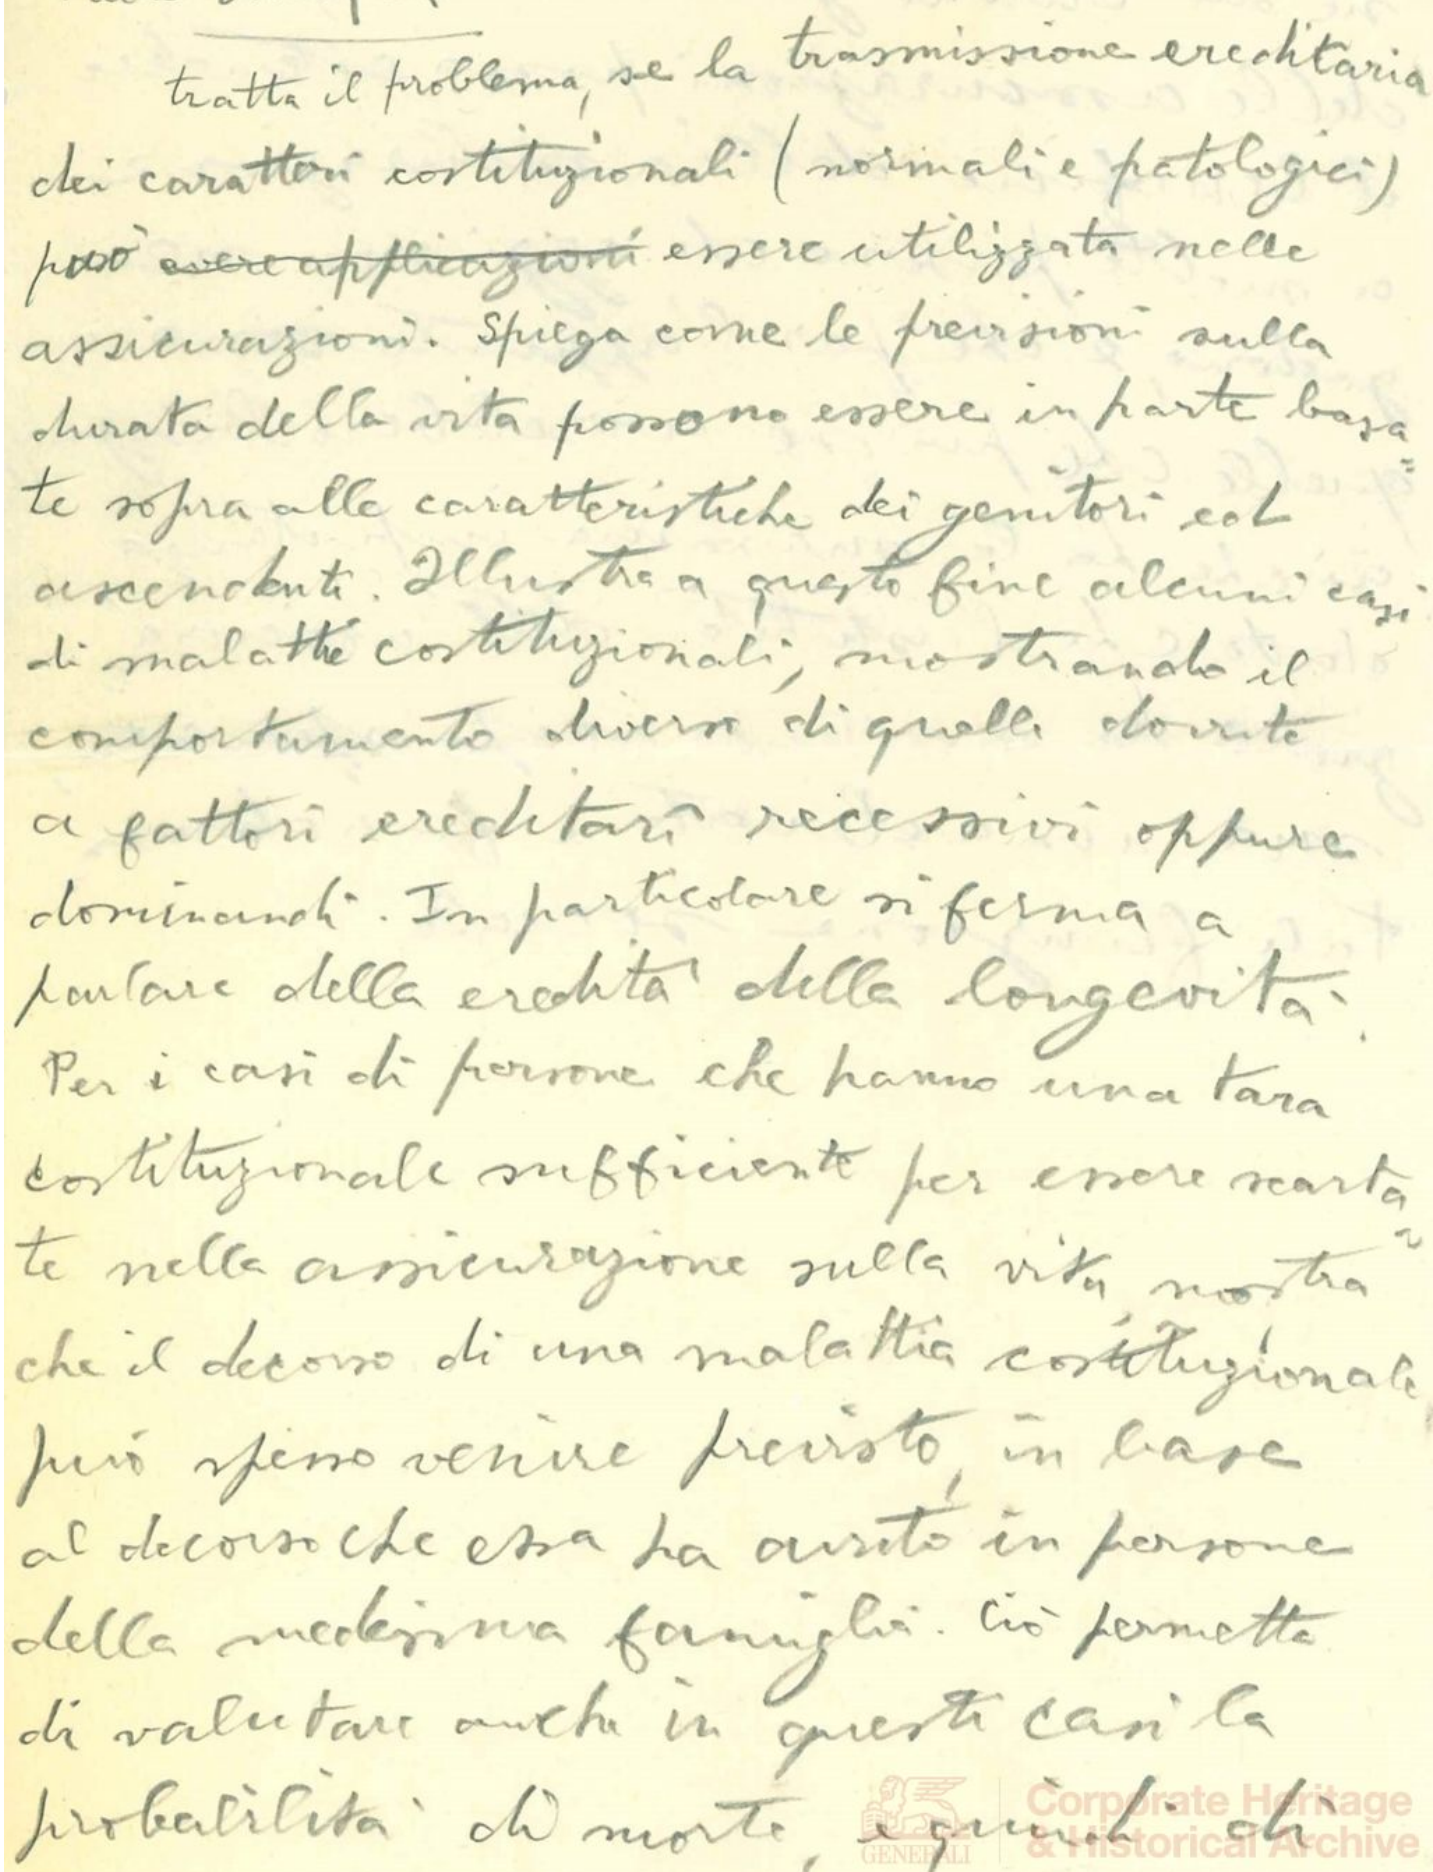 tratta il problema, se la trasmissione ereditaria
dei caratteri costituzionali (normali e patologici)
può avere applicazioni essere utilizzata nelle
assicurazioni. Spiega come le previsioni sulla
durata della vita possono essere in parte basa=
te sopra alle caratteristiche dei genitori ed
ascendenti. Illustra a questo fine alcuni casi
di malattie costituzionali, mostrando il
comportamento diverso di quelle dovute
a fattori ereditarî recessivi oppure
dominanti. In particolare si ferma a
parlare della eredità della longevità.
Per i casi di persone che hanno una tara
costituzionale sufficiente per essere scarta=
te nella assicurazione sulla vita, mostra
che il decorso di una malattia costituzionale
può spesso venire previsto, in base
al decorso che essa ha avuto in persone
della medesima famiglia. Ciò permette
di valutare anche in questi casi la
probabilità di morte, e quindi di
GENERALI
Corporate Heritage
& Historical Archive